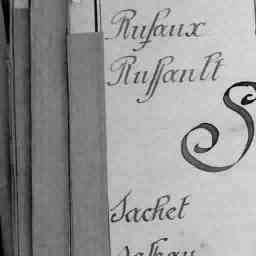 Rusaux
Russault
S
Sachet